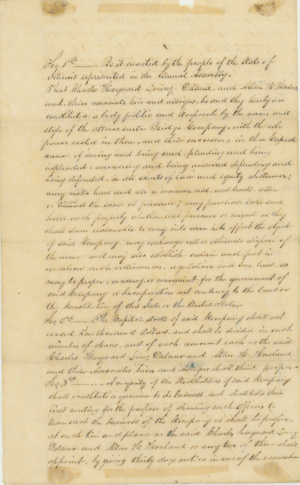 Sec 1st Be it enacted by the people of the State of
Illinois represented in the General Assembly.
That Charles Hayward Delano, and Allen H. Howland
and their associates heirs and assigns, be and they hereby are
constituted a body politic and corporate by the name and
style of the Bridge Company; with the sole
power vested in them, and their successors, in their corporate
name of suing and being sued, pleading and being
impleaded, answering and being answered, defending and
being defended, in all courts of law and equity
may make have and use a common seal, and alter
or the same at pleasure; may purchase take and
hold such property
shall deem reasonable to carry into effect the object
of said Company, may exchange sell or otherwise dispose of
the same and may also establish ordain and put in
execution such ordinances, regulations and bye laws as
may be proper, or convenient for the government of
said Company or Incorporation not contrary to the laws or
the Constitution of this State or the United States.
Sec 2nd The Capital Stock of said Company shall not
exceed Ten thousand dollars, and shall be divided in such
number of shares, and of such amount each as the said
Charles Hayward Delano and Allen H. Howland
and their Associates heirs and assigns shall think proper
Sec 3rd A majority of the Stockholders of said Company
shall constitute a quorum to do business and shall hold their
first meeting for the purpose of choosing such officers to
transact the business of the Company as shall be proper,
at such time and place as the said Charles Hayward
Delano and Allen H. Howland or any two of them shall
appoint, by giving thirty days notice in one of the